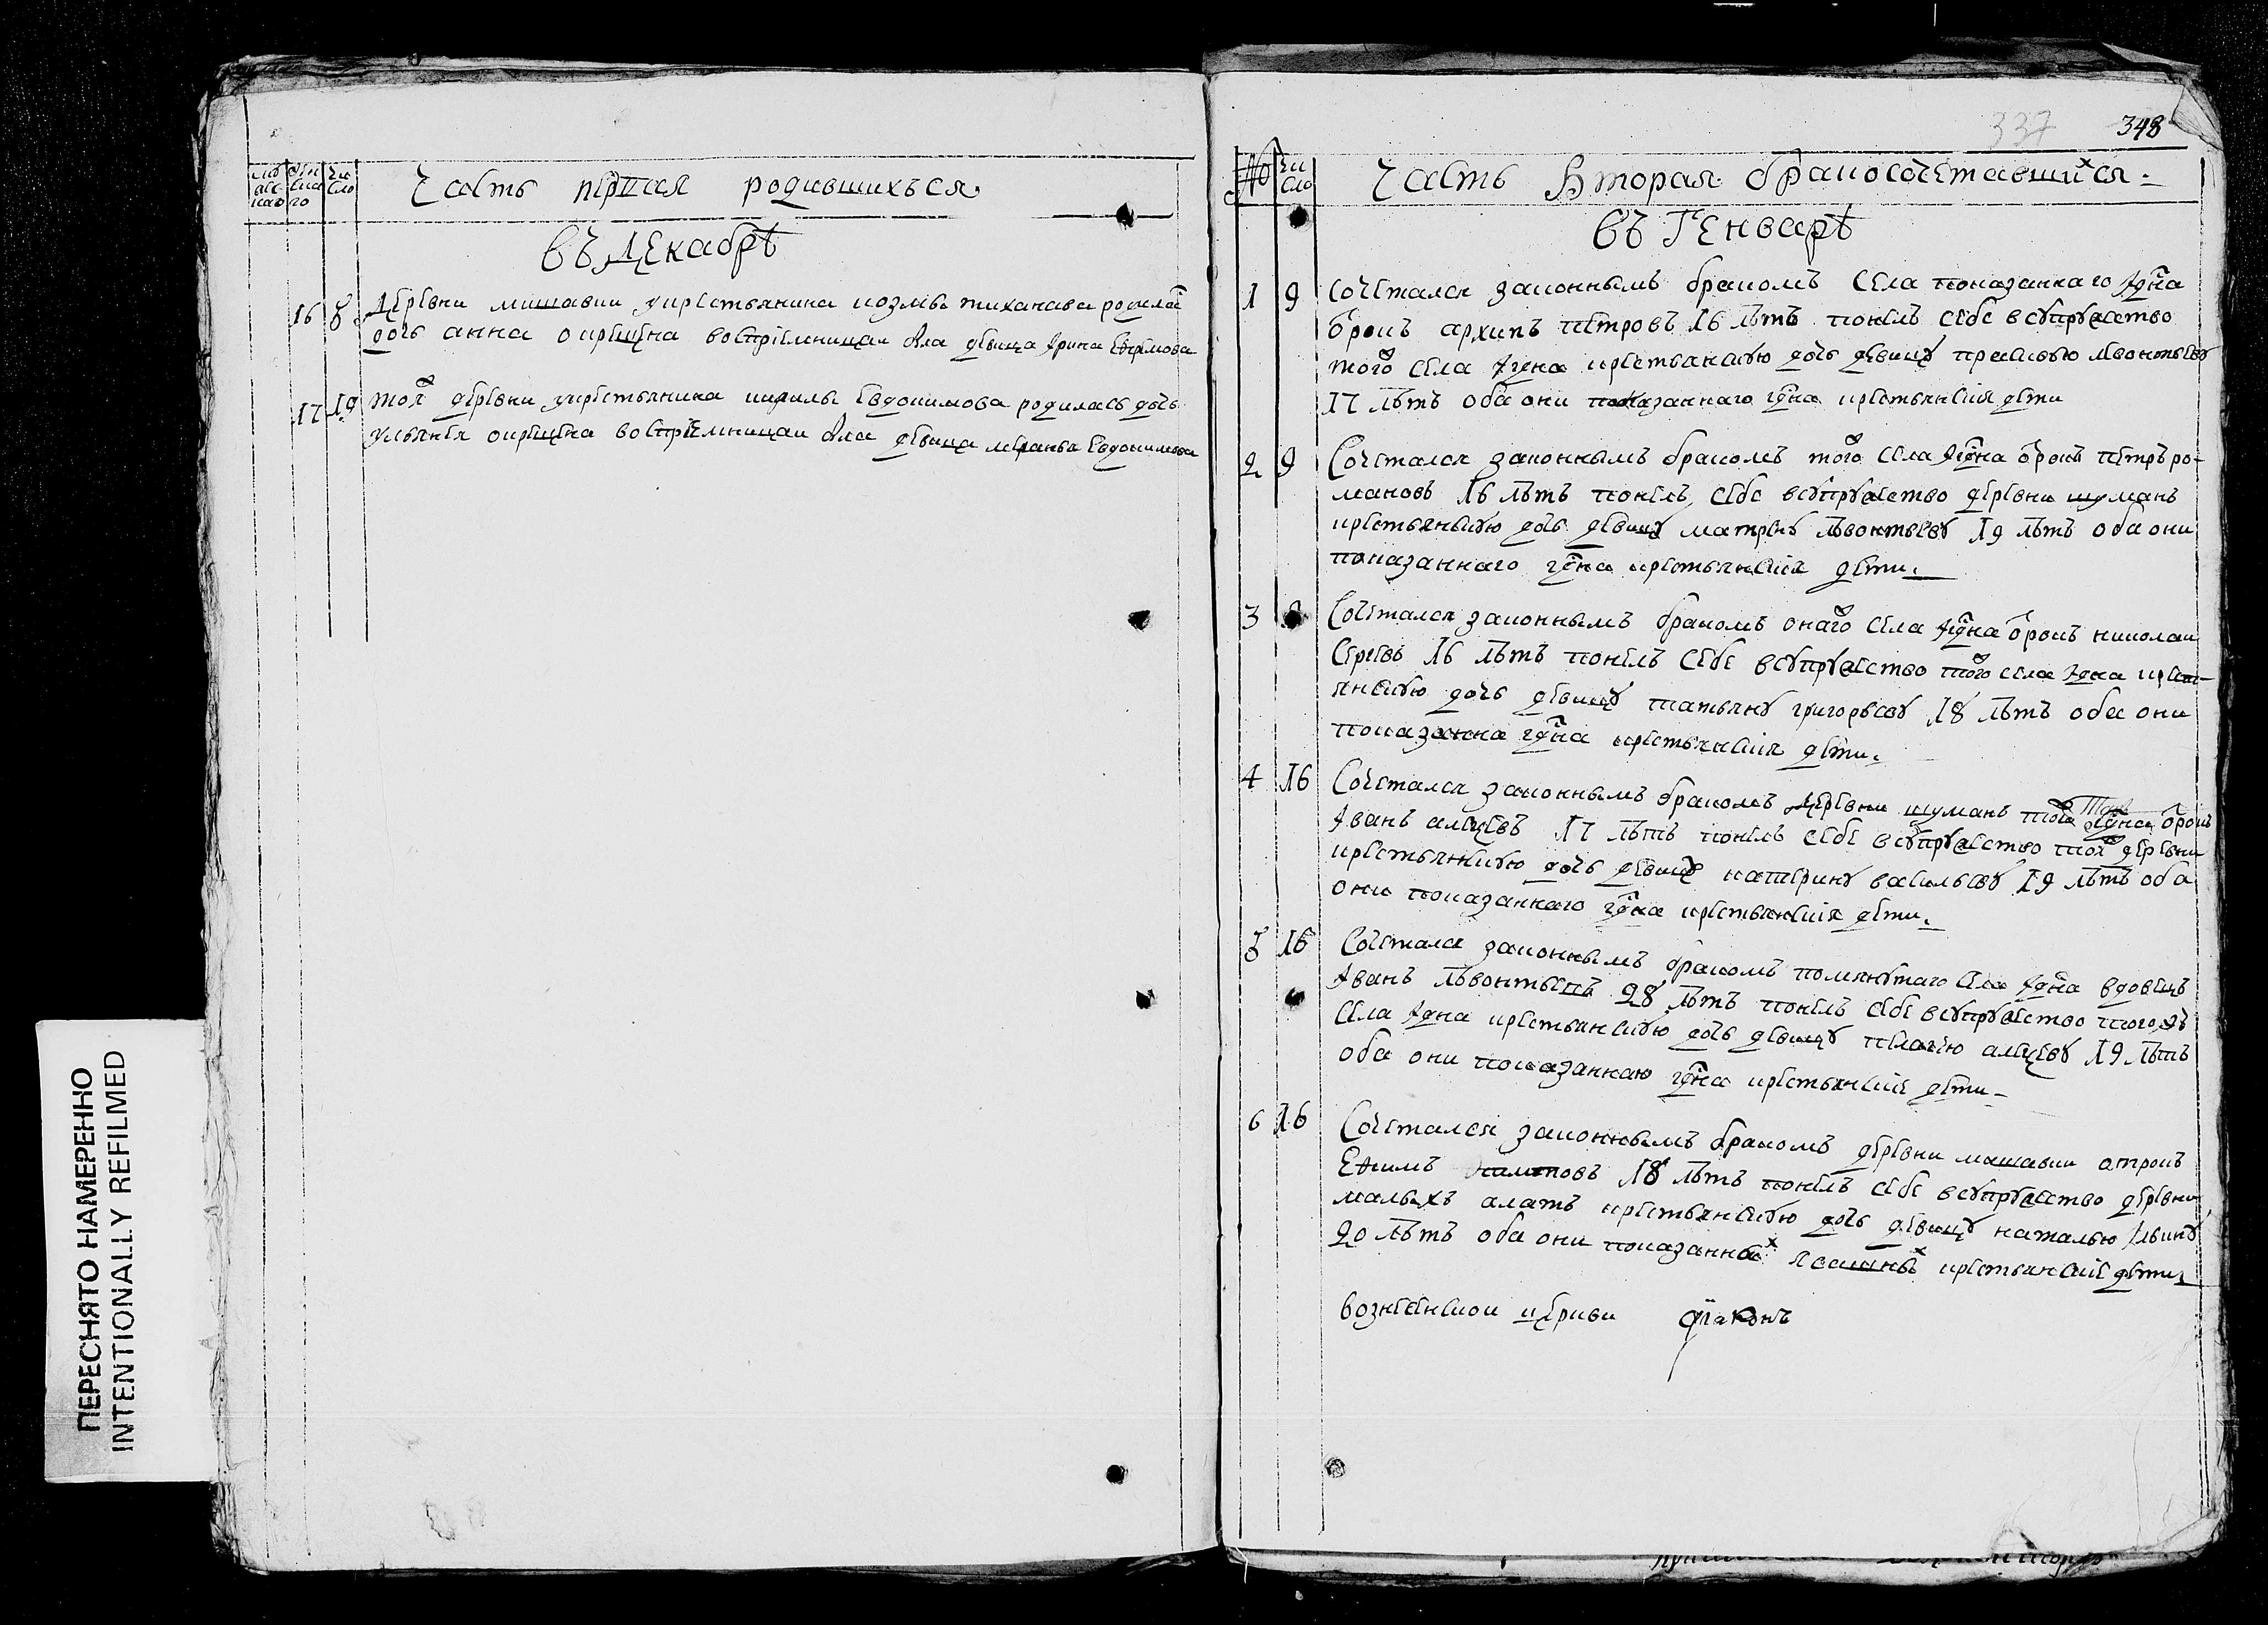 Часть первая родившихъся
въ Декабрѣ
16 8 Деревни мишавки укрестьянина козмы тиханава родилас
дочь анна окрещена восприемницаи была девица Ирина Ефремова
17 19 тоя деревни укрестьянина кирилы Евдокимова родилась дочь
Ульянея окрещена восприемницаи была девица меранья Евдокимова
348
337
№ число Часть Вторая бракосочетавшихся
въ Генварѣ
1 9 Сочетался законнымъ бракомъ села показаннаго Ядна
отрокъ архипъ петровъ 16 лѣтъ понелъ себе всупружество
того села Ядна крестьянскую дочь девицу прасковью лѣвонтьеву
17 лѣтъ оба они показаннаго гдна крестьянския дети
2 9 Сочетался законнымъ бракомъ того села Ядна отрокъ петръ ро-
мановъ 16 лѣтъ понелъ себе всупружество деревни шуманъ
крестьянскую дочь девицу матрену лѣвонтьеву 19 лѣтъ оба они
показаннаго гдна крестьянския дети.
3 Сочетался законнымъ бракомъ онаго села Ядна отрокъ николаи
Сергеевъ 16 лѣтъ понелъ себе всупружество того села Ядна крест-
янскую дочь девицу татьяну григорьеву 18 лѣтъ оба они
показанна гдна крестьянския дети.
4 16 Сочетался законнымъ бракомъ деревни шуманъ отрокъ
Иванъ алексеевъ 17 лѣтъ понелъ себе всупружество тоя деревни
крестьянскую дочь девицу катерину васильеву 19 лѣтъ оба
они показаннаго гдна крестьянския дети.
5 16 Сочетался законнымъ бракомъ помянутаго села Ядна вдовецъ
Иванъ лѣвонтьевъ 28 лѣтъ понелъ себе всупружество того
села Ядна крестьянскую дочь девицу пелагею алексееву 19 лѣтъ
оба они показаннаго гдна крестьянския дети
6 16 Сочетался законнымъ бракомъ деревни мишавки отрокъ
Ефимъ 18 лѣтъ понелъ себе всупружество деревни
малыхъ алатъ крестьянскую дочь девицу наталью Ильину
20 лѣтъ оба они показанных ясашных крестьянские дети
вознесенскои церкви диаконъ
ПЕРЕСНЯТО НАМЕРЕННО
INTENTIONALLY REFILMED